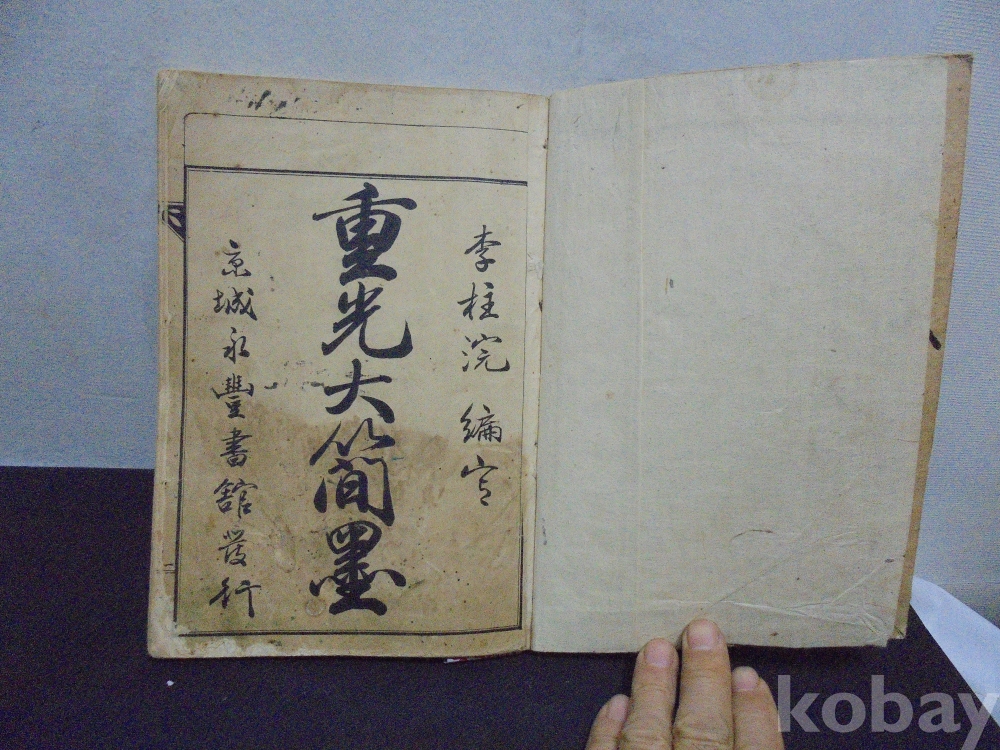 李柱浣 編定
重光大簡墨
京城永豐書舘發行
kobay